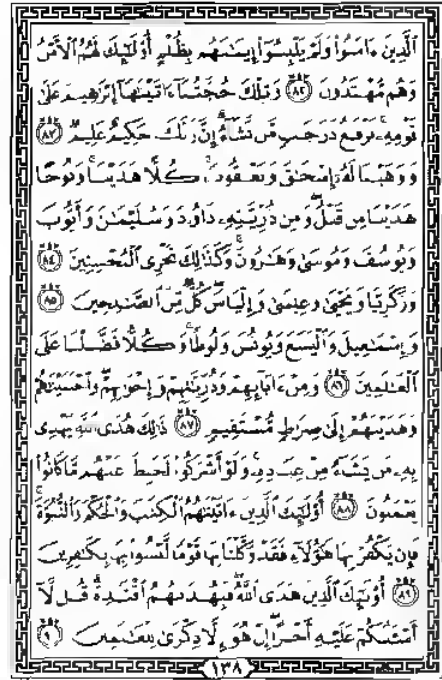 ٱلَّذِينَ ءَامَنُوا۟ وَلَمْ يَلْبِسُوٓا۟ إِيمَـٰنَهُم بِظُلْمٍ أُو۟لَـٰٓئِكَ لَهُمُ ٱلْأَمْنُ
وَهُم مُّهْتَدُونَ ﴿٨٢﴾ وَتِلْكَ حُجَّتُنَآ ءَاتَيْنَـٰهَآ إِبْرَٰهِيمَ عَلَىٰ
قَوْمِهِۦ نَرْفَعُ دَرَجَـٰتٍ مَّن نَّشَآءُ إِنَّ رَبَّكَ حَكِيمٌ عَلِيمٌ ﴿٨٣﴾
وَوَهَبْنَا لَهُۥٓ إِسْحَـٰقَ وَيَعْقُوبَ كُلًّا هَدَيْنَا وَنُوحًا
هَدَيْنَا مِن قَبْلُ وَمِن ذُرِّيَّتِهِۦ دَاوُۥدَ وَسُلَيْمَـٰنَ وَأَيُّوبَ
وَيُوسُفَ وَمُوسَىٰ وَهَـٰرُونَ وَكَذَٰلِكَ نَجْزِى ٱلْمُحْسِنِينَ ﴿٨٤﴾
وَزَكَرِيَّا وَيَحْيَىٰ وَعِيسَىٰ وَإِلْيَاسَ كُلٌّ مِّنَ ٱلصَّـٰلِحِينَ ﴿٨٥﴾
وَإِسْمَـٰعِيلَ وَٱلْيَسَعَ وَيُونُسَ وَلُوطًا وَكُلًّا فَضَّلْنَا عَلَى
ٱلْعَـٰلَمِينَ ﴿٨٦﴾ وَمِنْ ءَابَآئِهِمْ وَذُرِّيَّـٰتِهِمْ وَإِخْوَٰنِهِمْ وَٱجْتَبَيْنَـٰهُمْ
وَهَدَيْنَـٰهُمْ إِلَىٰ صِرَٰطٍ مُّسْتَقِيمٍ ﴿٨٧﴾ ذَٰلِكَ هُدَى ٱللَّهِ يَهْدِى
بِهِۦ مَن يَشَآءُ مِنْ عِبَادِهِۦ وَلَوْ أَشْرَكُوا۟ لَحَبِطَ عَنْهُم مَّا كَانُوا۟
يَعْمَلُونَ ﴿٨٨﴾ أُو۟لَـٰٓئِكَ ٱلَّذِينَ ءَاتَيْنَـٰهُمُ ٱلْكِتَـٰبَ وَٱلْحُكْمَ وَٱلنُّبُوَّةَ
فَإِن يَكْفُرْ بِهَا هَـٰٓؤُلَآءِ فَقَدْ وَكَّلْنَا بِهَا قَوْمًا لَّيْسُوا۟ بِهَا بِكَـٰفِرِينَ
﴿٨٩﴾ أُو۟لَـٰٓئِكَ ٱلَّذِينَ هَدَى ٱللَّهُ فَبِهُدَىٰهُمُ ٱقْتَدِهْ قُل لَّآ
أَسْـَٔلُكُمْ عَلَيْهِ أَجْرًا إِنْ هُوَ إِلَّا ذِكْرَىٰ لِلْعَـٰلَمِينَ ﴿٩٠﴾
١٣٨